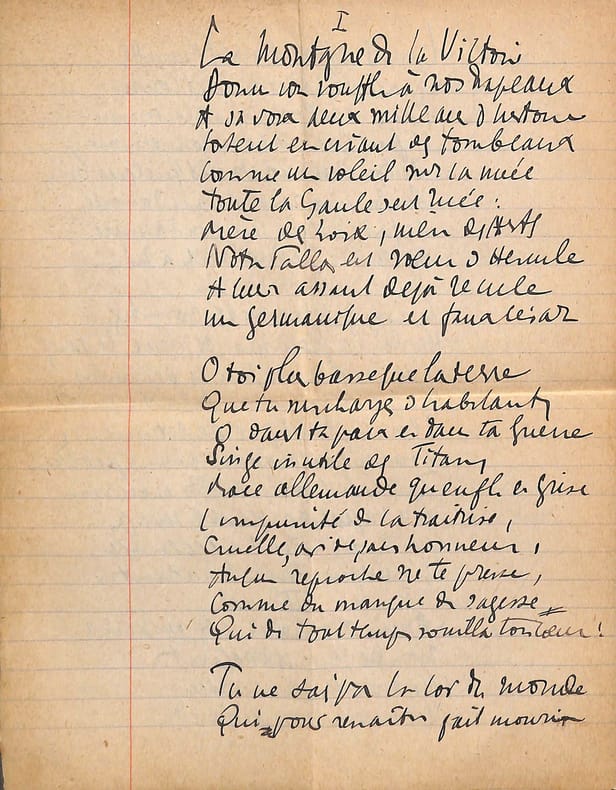 I
La Montagne de la Victoire
Donne son souffle à nos drapeaux
A sa voix deux mille ans d'histoire
Sortent en criant des tombeaux
Comme un soleil sur la nuée
toute la Gaule s'est ruée :
Mère des Lois, mère des Arts
Notre Pallas est sœur d'Hercule
A leur assaut déjà recule
un germanique et faux césar
O toi plus basse que la terre
Que tu surcharges d'habitants
O dans ta paix et dans ta guerre
Singe inutile des Titans
Race allemande qu'enfle et grise
l'impunité de la traîtrise,
Cruelle, avide, sans honneur,
Aucun reproche ne te presse,
Comme du manque de sagesse
Qui de tout temps souilla ton cœur !
Tu ne sais pas la loi du monde
Qui pour renaître fait mourir